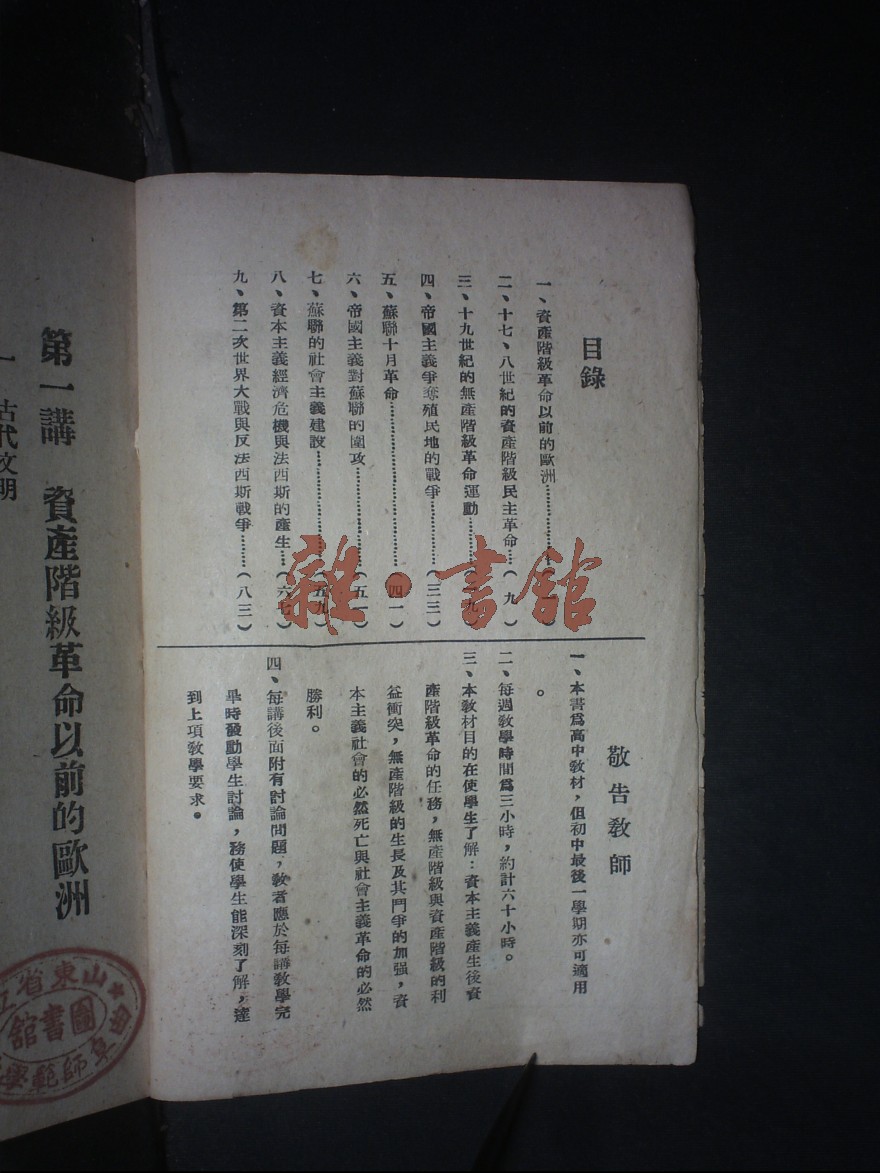 目錄
一、資產階級革命以前的歐洲
二、十七、八世紀的資產階級民主革命…(九)
三、十九世紀的無產階級革命運動
四、帝國主義爭奪殖民地的戰爭…(三三)
五、蘇聯十月革命…(四一)
六、帝國主義對蘇聯的圍攻…(五一)
七、蘇聯的社會主義建設…(五九)
八、資本主義經濟危機與法西斯的產生…(六七)
九、第二次世界大戰與反法西斯戰爭…(八三)
敬告教師
一、本書爲高中教材，但初中最後一學期亦可適用
。
二、每週教學時間爲三小時，約計六十小時。
三、本教材目的在使學生了解：資本主義產生後資
產階級革命的任務，無產階級與資產階級的利
益衝突，無產階級的生長及其鬥爭的加强，資
本主義社會的必然死亡與社會主義革命的必然
勝利。
四、每講後面附有討論問題，教者應於每講教學完
畢時發動學生討論，務使學生能深刻了解，達
到上項教學要求。
第一講 資產階級革命以前的歐洲
一 古代文明
山東省立
師範學
圖書館
雜·書館